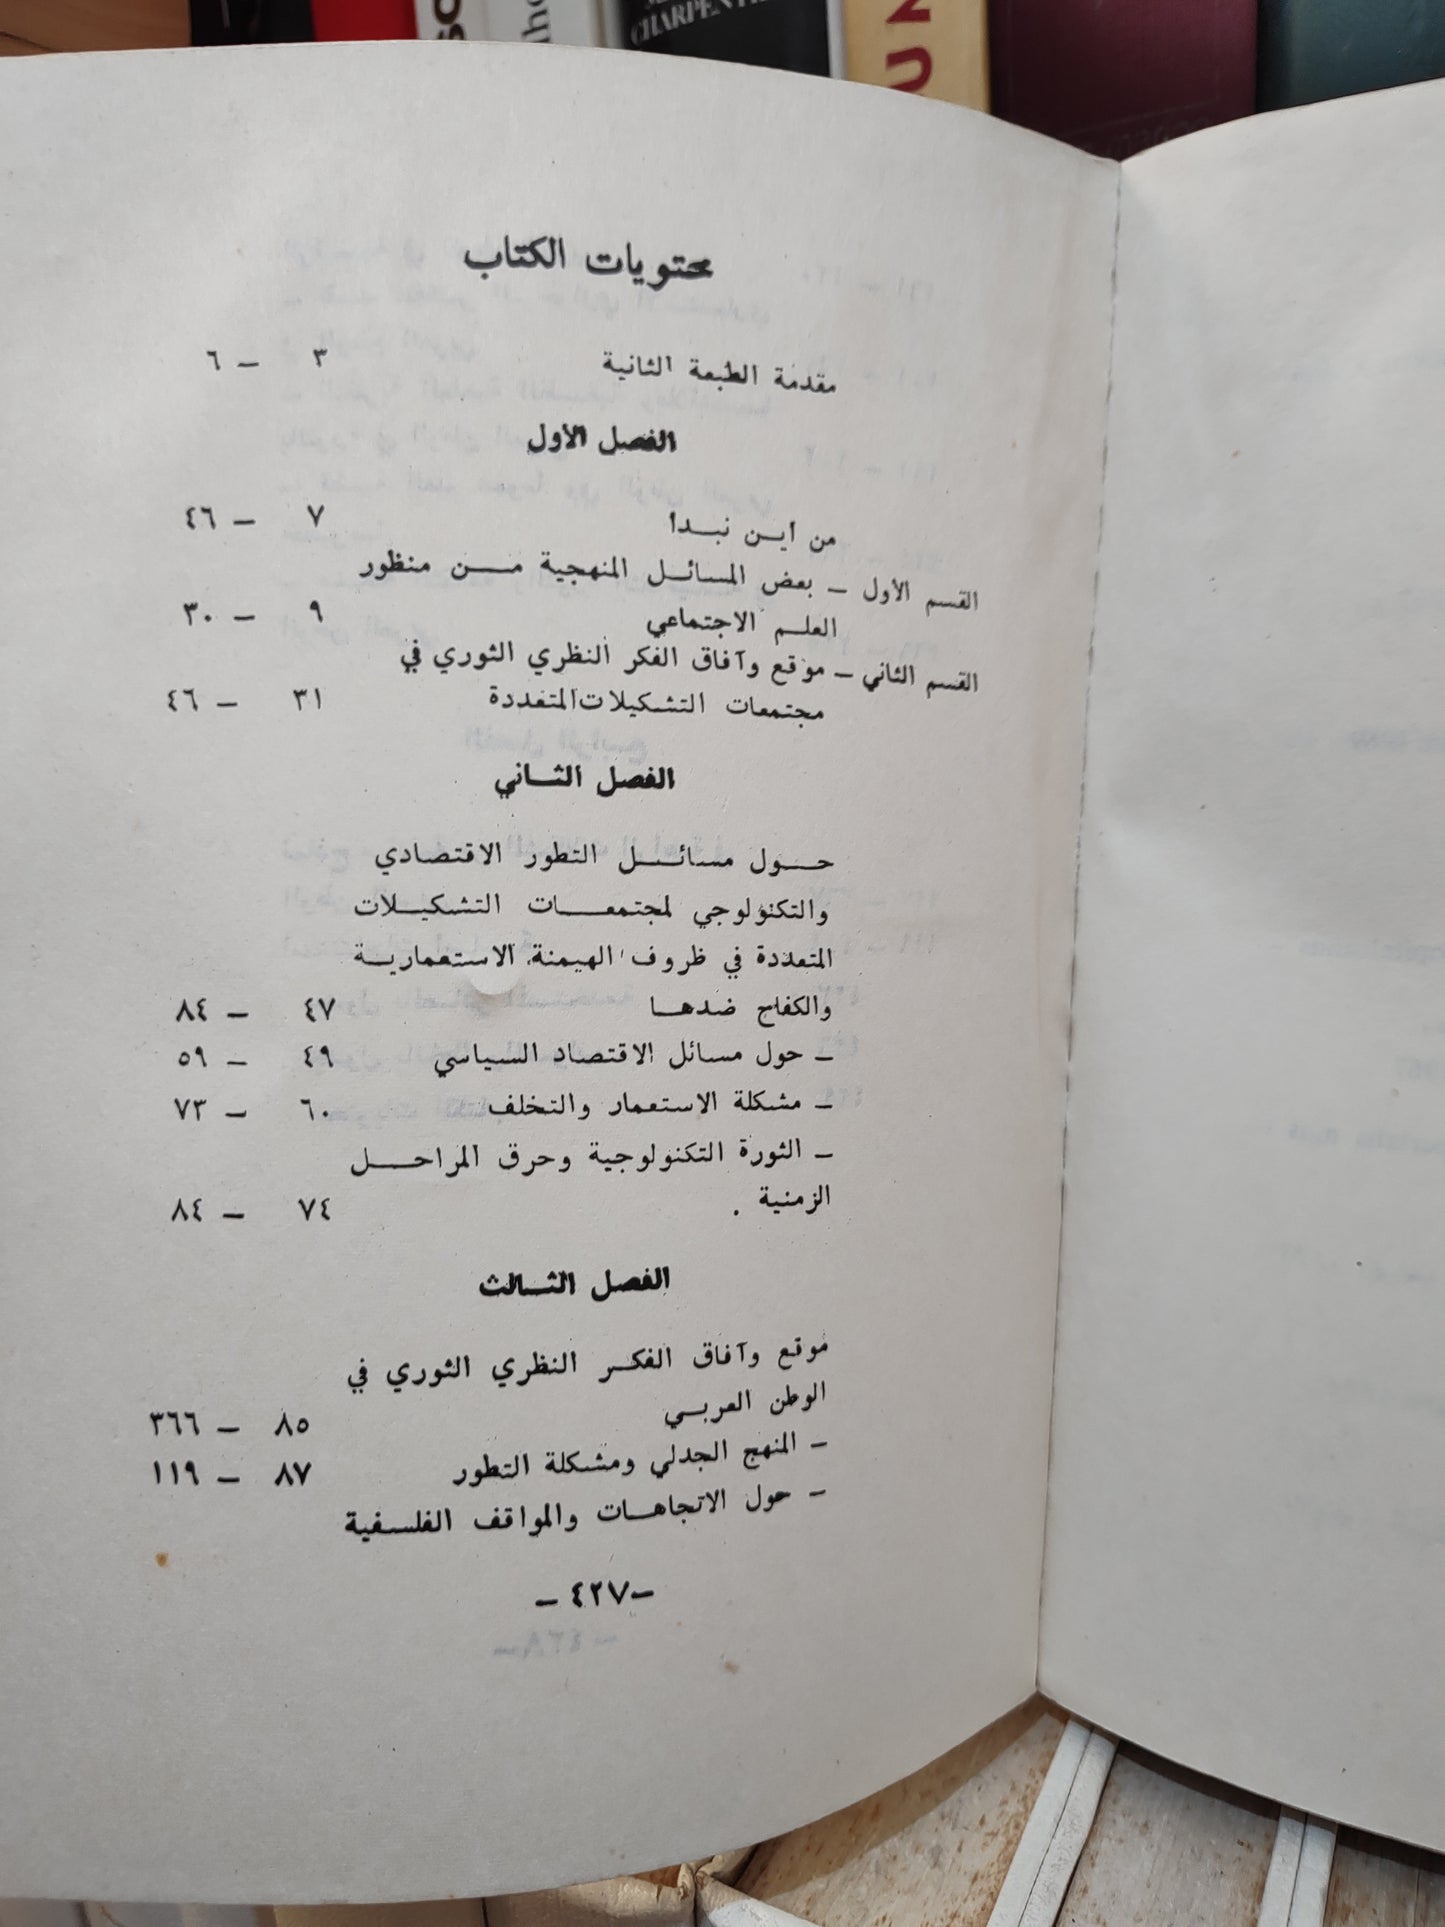 CHARPENTIE
UN
محتويات الكتاب
مقدمة الطبعة الثانية ٣ – ٦
الفصل الأول
من اين نبدأ ٧ – ٤٦
القسم الأول – بعض المسائل المنهجية من منظور
العلم الاجتماعي ٩ – ٣٠
القسم الثاني – موقع وآفاق الفكر النظري الثوري في
مجتمعات التشكيلات المتعددة ٣١ – ٤٦
الفصل الثاني
حول مسائل التطور الاقتصادي
والتكنولوجي لمجتمعات التشكيلات
المتعددة في ظروف الهيمنة الاستعمارية
والكفاح ضدها ٤٧ – ٨٤
– حول مسائل الاقتصاد السياسي ٤٩ – ٥٩
– مشكلة الاستعمار والتخلف ٦٠ – ٧٣
– الثورة التكنولوجية وحرق المراحل
الزمنية . ٧٤ – ٨٤
الفصل الثالث
موقع وآفاق الفكر النظري الثوري في
الوطن العربي ٨٥ – ٣٦٦
– المنهج الجدلي ومشكلة التطور ٨٧ – ١١٩
– حول الاتجاهات والمواقف الفلسفية
– ٤٢٧ –